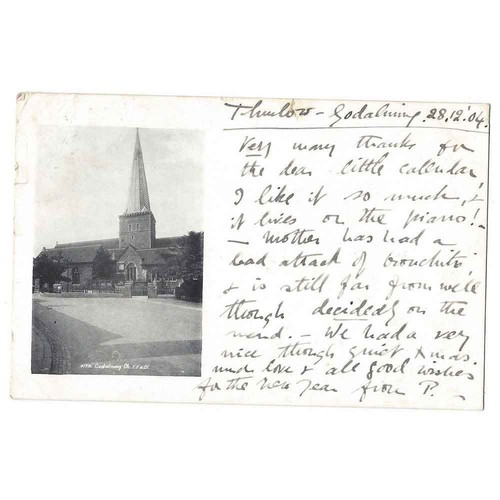 Thurlow - Godalming. 28.12.'04.
Very many thanks for
the dear little callendar
I like it so much, &
it lives on the piano! -
- Mother has had a
bad attack of bronchitis
& is still far from well
though decidedly on the
mend. - We had a very
nice though quiet Xmas.
much love & all good wishes
for the New Year from P. -
Godalming Ch.